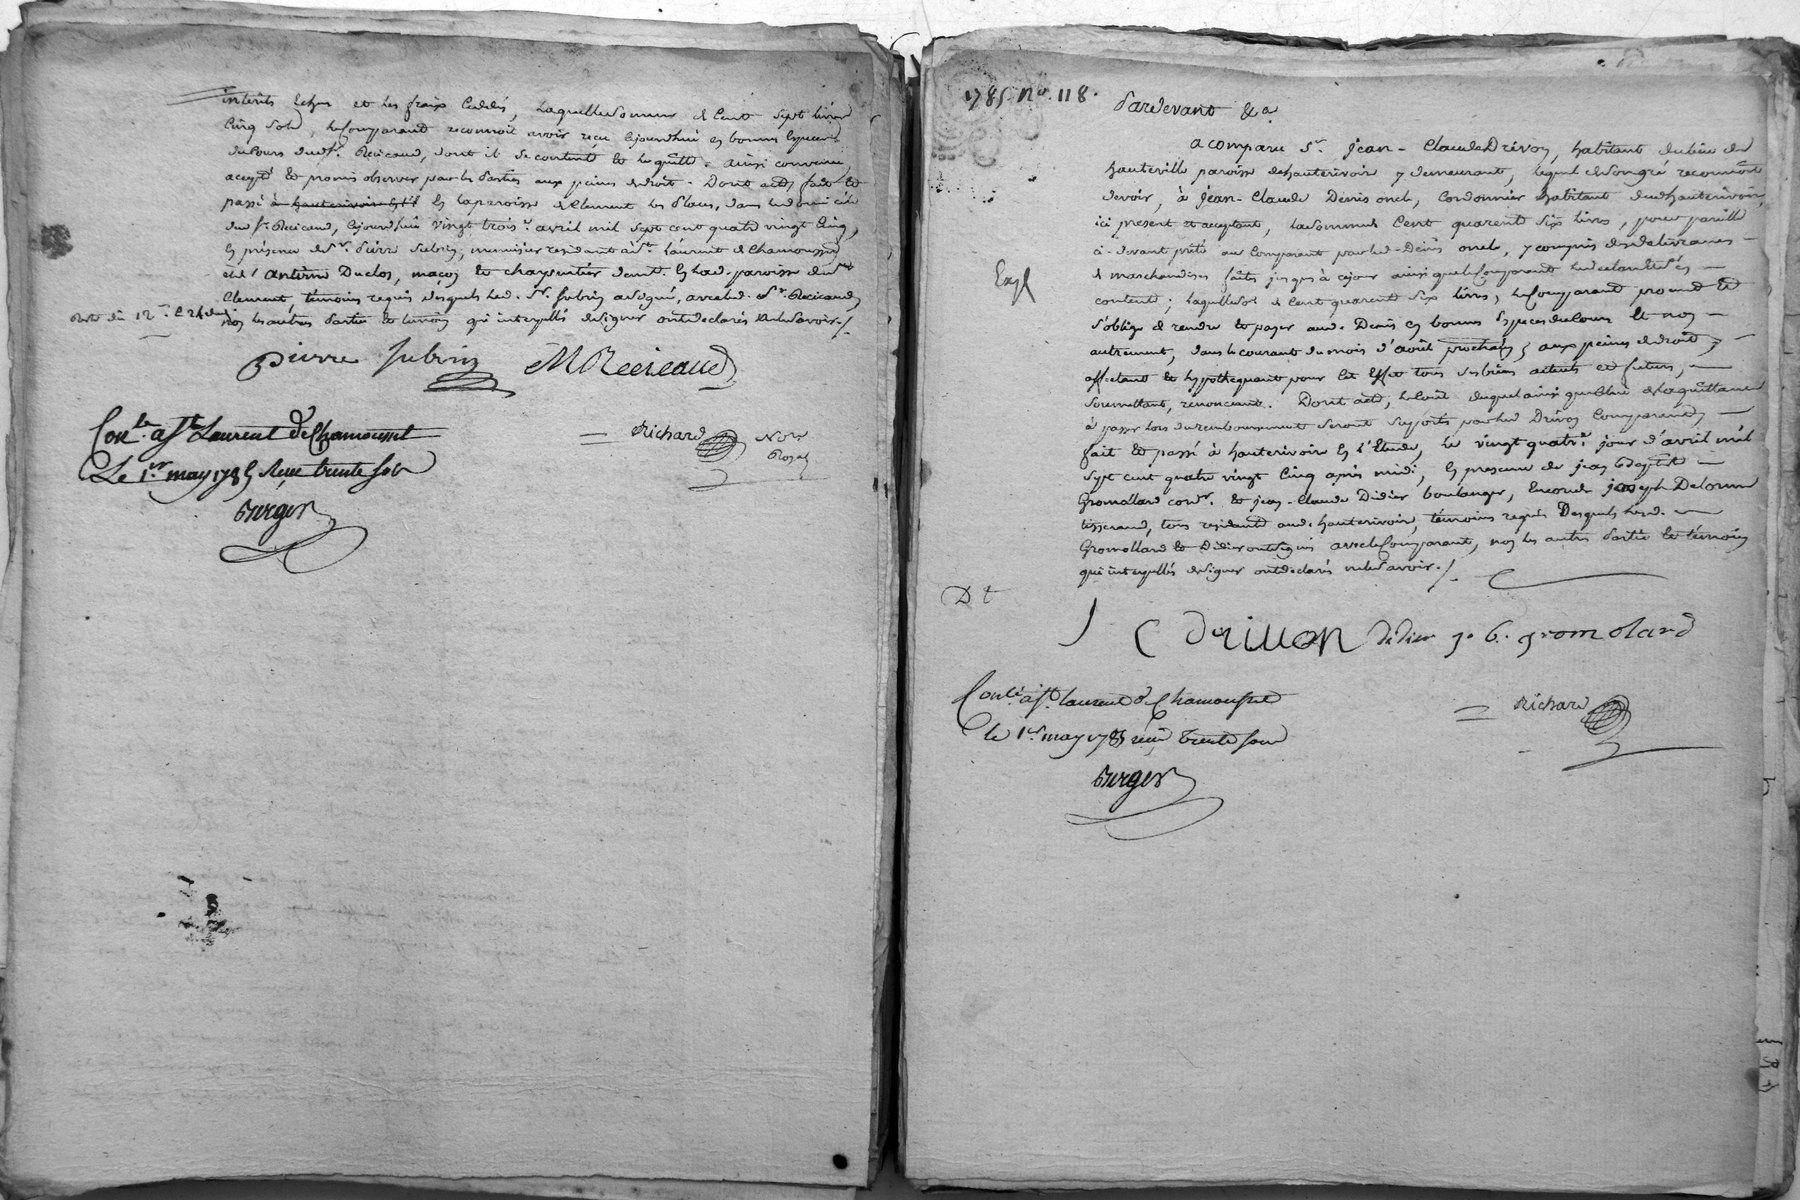 interêts echus et les fraix cedés, laquelle somme de Cent sept livres
Cinq sols, le Comparand reconnoit avoir reçu cejourdhui en bonnes especes
du Cours dudt Sr. Recicaud, dont il se contente et le quitte. ainsi convenu
accepté et promis observer par les Parties aux peines de droit. Dont acte, fait et
passé à hauterivoir en la paroisse de Clement les Places, dans le domicile
dud Sr. Recicaud, cejourdhui vingt trois avril mil sept cent quatre vingt Cinq,
En présence de Sr. Pierre Subrin, menuisier residant à St. Laurent de Chamousset
et de Antoine Duclos, maçon et charpentier demt. en lad. paroisse de St
Clement, témoins requis desquels led. Sr. Subrin a signé, avec led. Sr. Recicaud,
non les autres Partie et temoin qui interpellés de signer ont declarés ne le savoir ./.
pierre subrin M Recicaud
Richard Nore Royal
Conlé. a St Laurent de Chamousset
Le 1er. may 1785 Reçu trente sols
Berger
1785 No. 118.
Pardevant &a
a comparu Sr. Jean-Claude Drivon, habitant du lieu de
hauteville paroisse de hauterivoir y demeurant, lequel de son gré reconnoit
devoir, à Jean-Claude Denis oncle, Cordonnier habitant dud hauterivoir,
ici present et acceptant, la somme de Cent quarente six livres, pour pareille
ci-devant prêté au Comparant par led-Denis oncle, y compris des delivrances
de marchandises faites jusques à cejour ainsi que le Comparant
content; laquelle so. de Cent quarente six livres, le Comparand promet et
s'oblige de rendre et payer aud. Denis en bonnes Especes du Cours et non
autrement, dans le courant du mois d'août prochain, aux peines de droit,
affectant et hypothequant pour cet effet tous ses biens actuels et futurs,
soumettant, renonceant. Dont acte, le Coût duquel ainsi que celui de la quittance
à passer lors du remboursement seront supportés par led Drivon Comparand,
fait et passé à hauterivoir en l'Etude, le vingt quatre. jour d'avril mil
sept cent quatre vingt Cinq après midi, En presence de jean Baptiste
Gromollard cordr. et jean-Claude Didier boulanger, Encore de joseph Delorme
tisserand, tous residants aud. hauterivoir, témoins requis Desquels lesd.
Gromollard et Didier ont signés avec le Comparant, non les autres Partie et témoin
qui interpellés de signer ont declarés ne le savoir ./.
Expé
Dt
J C drivon didier J. b. gromolard
Richard
Conlé. a St. Laurent de Chamousset
le 1er may 1785 reçu trente sous
Berger